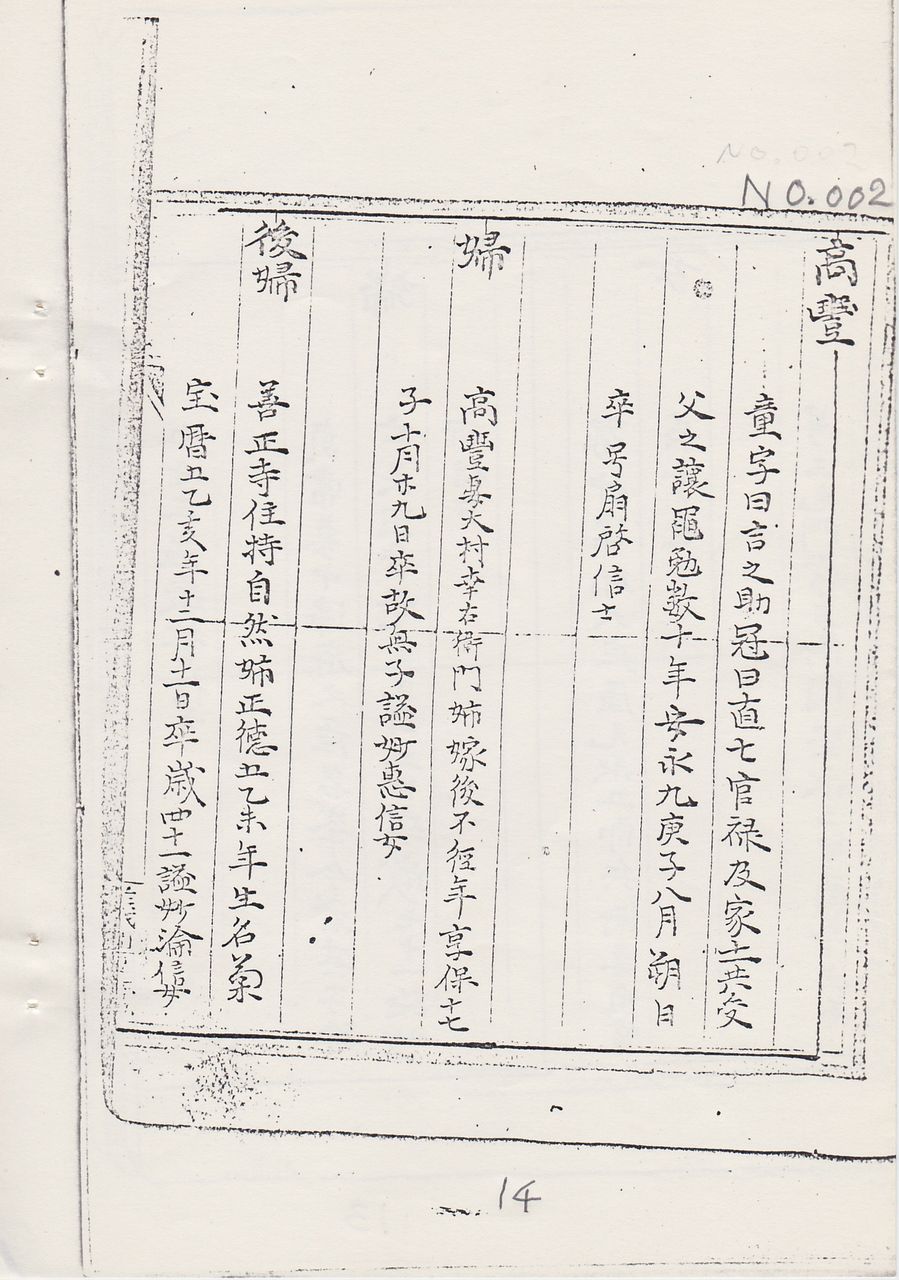 NO.002
高豐
童字曰言之助冠曰直七官禄及家士共受
父之讓黽勉数十年安永九庚子八月朔日
卒号扇啓信士
婦
高豐縣大村幸右衛門姉嫁後不経年享保十七
子十月廿九日卒故無子謚妙惠信女
後婦
善正寺住持自然姉正徳五乙未年生名菊
宝暦五乙亥年十二月十一日卒歳四十一謚妙淪信女
14